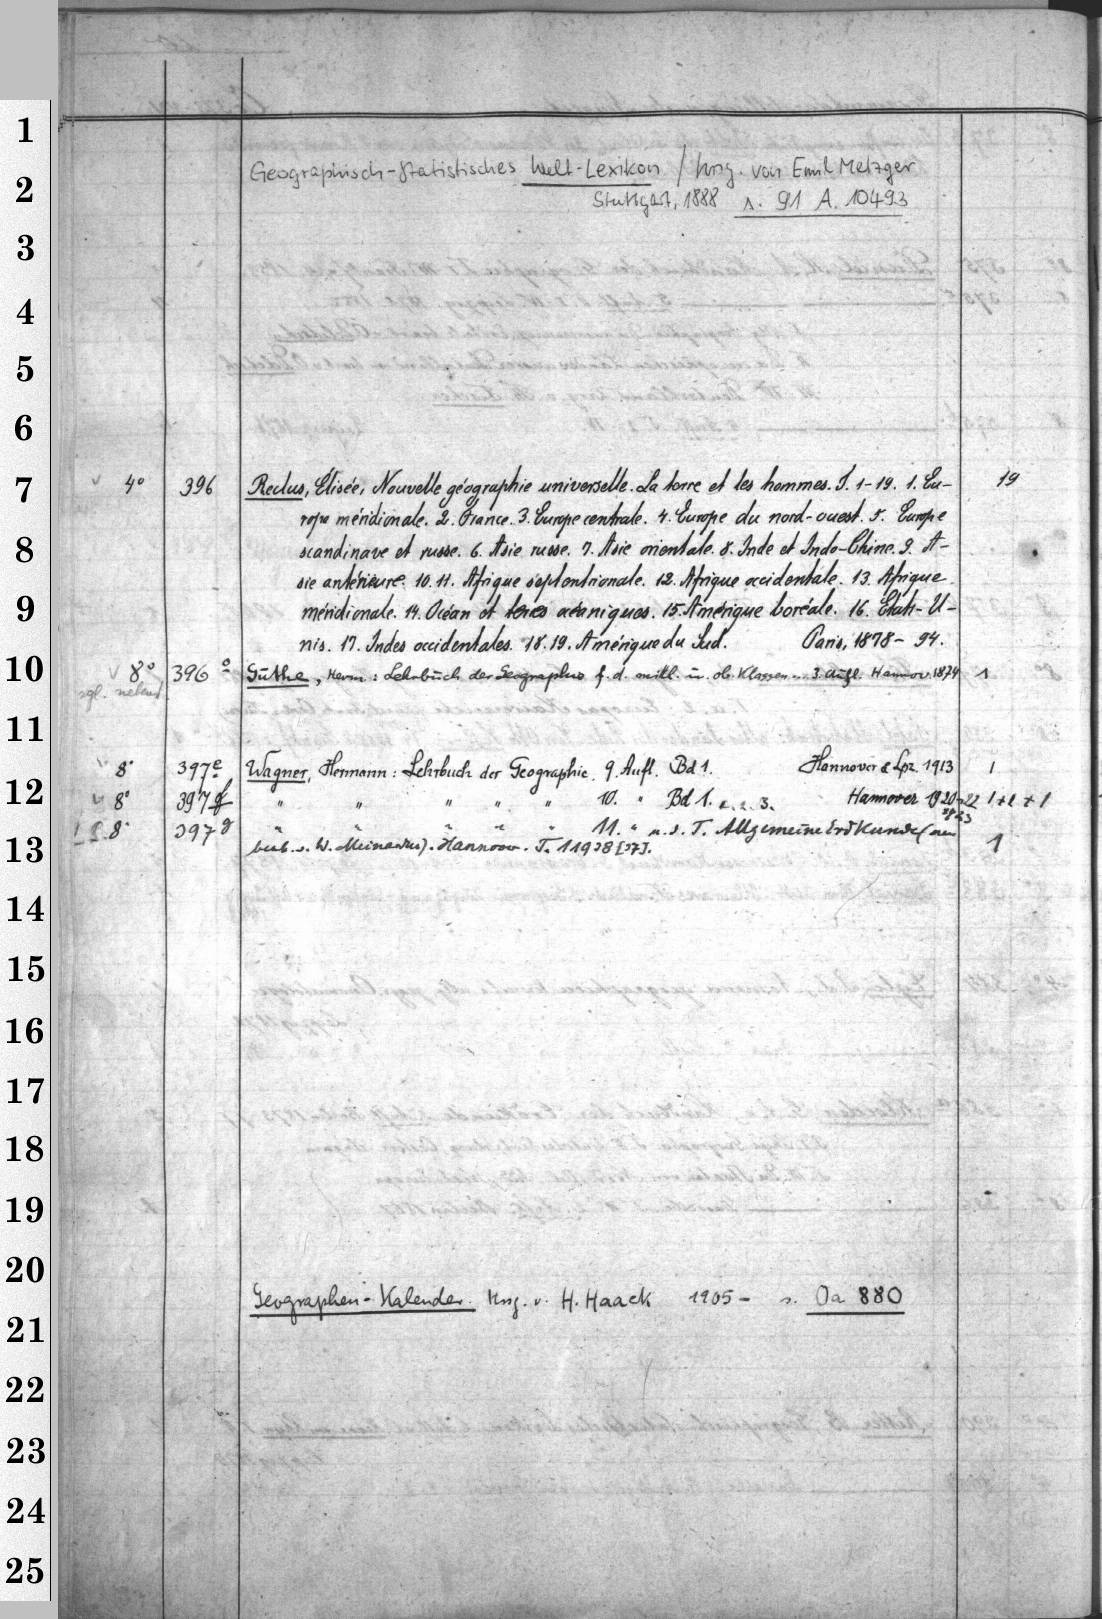 1
2
3
4
5
6
7
8
9
10
11
12
13
14
15
16
17
18
19
20
21
22
23
24
25
Geographisch-statistisches Welt-Lexikon / hrsg. von Emil Metzger
Stuttgart, 1888 s. 91 A. 10493
4° 396 Reclus, Élisée, Nouvelle géographie universelle. La terre et les hommes. T. 1-19. 1. Eu- 19
rope méridionale. 2. France. 3. Europe centrale. 4. Europe du nord-ouest. 5. Europe
scandinave et russe. 6. Asie russe. 7. Asie orientale. 8. Inde et Indo-Chine. 9. A-
sie antérieure. 10. 11. Afrique septentrionale. 12. Afrique occidentale. 13. Afrique
méridionale. 14. Océan et terres océaniques. 15. Amérique boréale. 16. Etats-U-
nis. 17. Indes occidentales. 18. 19. Amérique du Sud. Paris, 1878-94.
8° 396 a Guthe, Herm: Lehrbuch der Geographie f. d. mittl. u. ob. Klassen... 3. Aufl. Hannov. 1874 1
8° 397e Wagner, Hermann: Lehrbuch der Geographie. 9. Aufl. Bd 1. Hannover & Lpz. 1913 1
8° 397f " " " " " 10. " Bd 1. 2. 3. Hannover 1920-22 1+1+1
23
8° 397g " " " " " 11. " u. d. T. Allgemeine Erdkunde (neu
bearb. v. W. Meinardus). Hannover. T. 1 1938 [37]. 1
Geographen-Kalender. Hrsg. v. H. Haack 1905- s. Oa 880